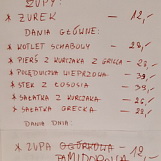 ZUPY:
* ŻUREK - 12,-
DANIA GŁÓWNE:
* KOTLET SCHABOWY - 28,-
* PIERŚ Z KURCZAKA Z GRILLA - 28,-
* POLĘDWICZKA WIEPRZOWA - 39,-
* STEK Z ŁOSOSIA - 39,-
* SAŁATKA Z KURCZAKA - 26,-
* SAŁATKA GRECKA - 22,-
DANIA DNIA
* ZUPA OGÓRKOWA - 12
POMIDOROWA